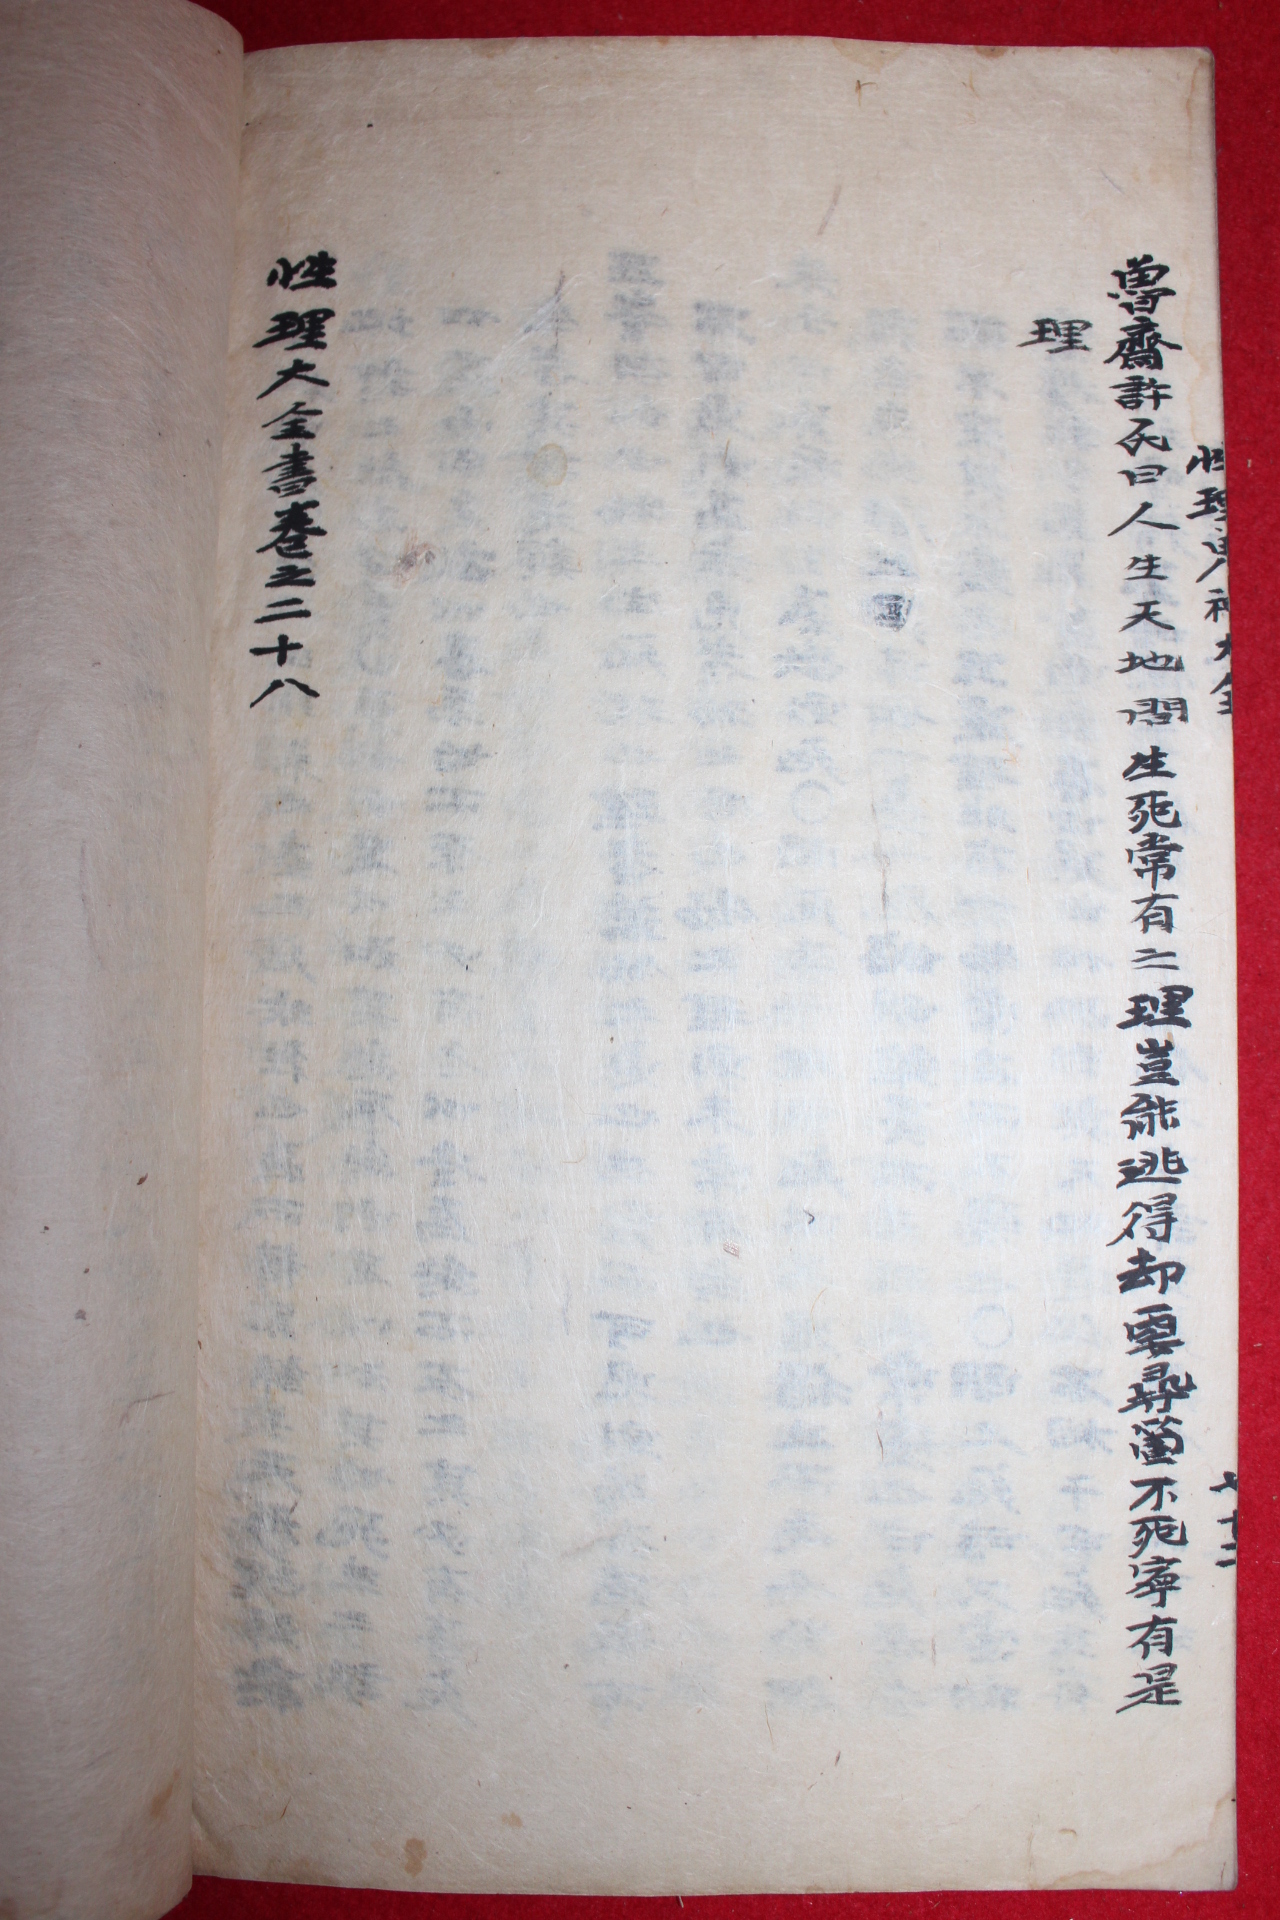 性理鬼神大全 七十二
魯齋許氏曰人生天地間生死常有之理豈能逃得却要尋箇不死寧有是
理
性理大全書卷之二十八